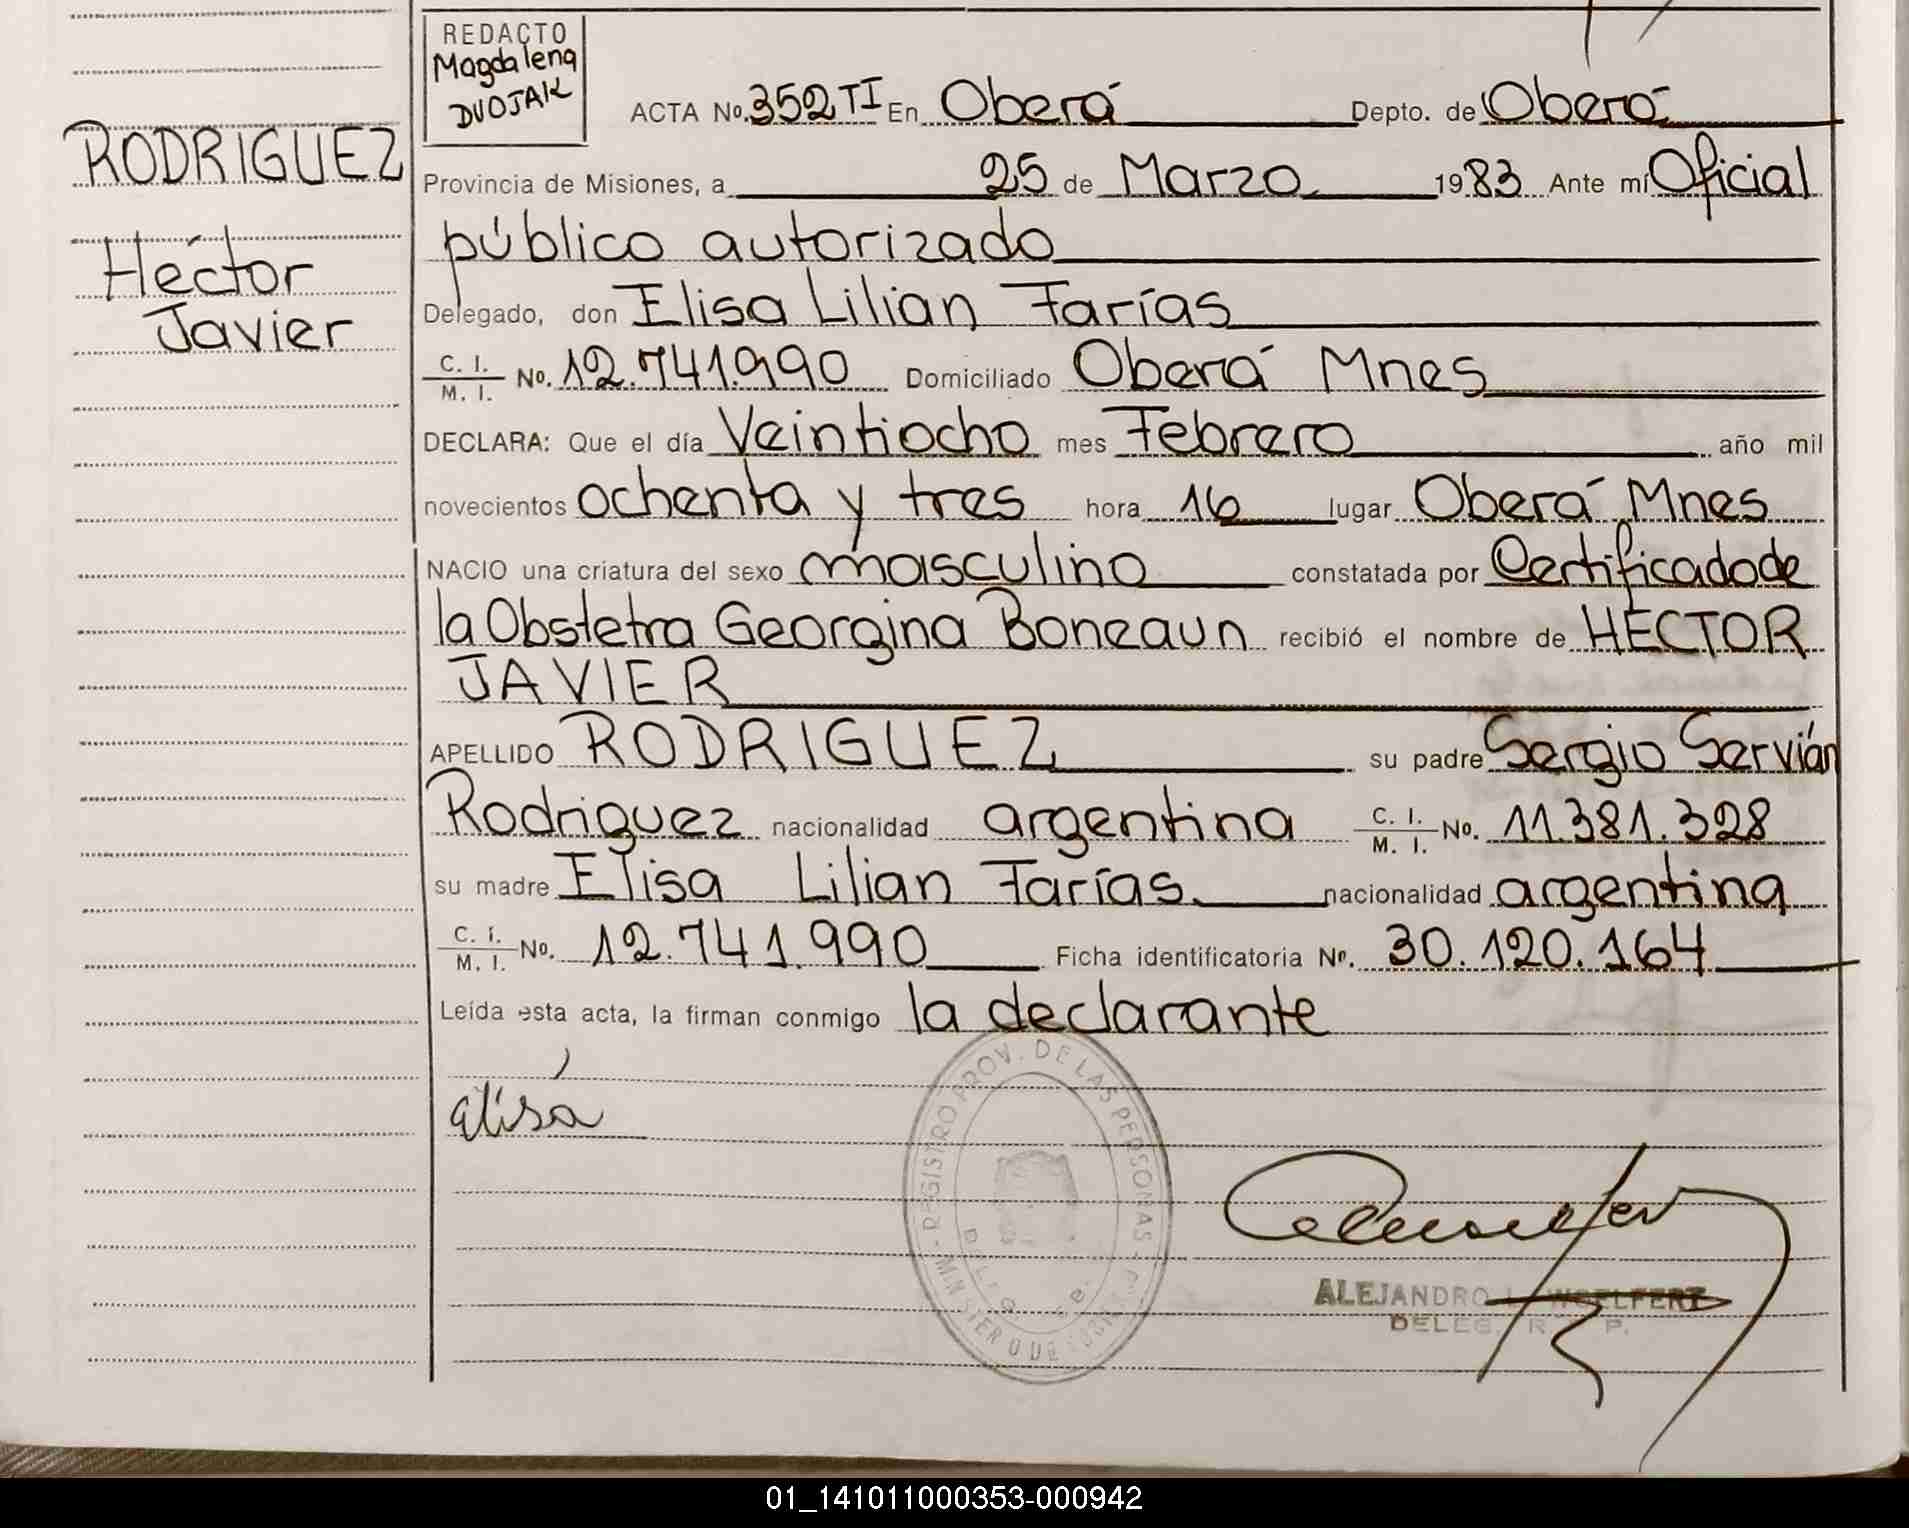 REDACTO
Magdalena
DVOJAK
RODRIGUEZ
Héctor
Javier
ACTA No. 352 TI En Oberá Depto. de Oberá
Provincia de Misiones, a 25 de Marzo 1983 Ante mí Oficial
público autorizado
Delegado, don Elisa Lilian Farías
C. I. / M. I. No. 12.741.990 Domiciliado Oberá Mnes
DECLARA: Que el día Veintiocho mes Febrero año mil
novecientos ochenta y tres hora 16 lugar Oberá Mnes
NACIO una criatura del sexo masculino constatada por Certificado de
la Obstetra Georgina Boneaun recibió el nombre de HÉCTOR
JAVIER
APELLIDO RODRIGUEZ su padre Sergio Servián
Rodriguez nacionalidad argentina C. I. / M. I. No. 11.381.328
su madre Elisa Lilian Farías nacionalidad argentina
C. I. / M. I. No. 12.741.990 Ficha identificatoria No. 30.120.164
Leída esta acta, la firman conmigo la declarante
REGISTRO PROV. DE LAS PERSONAS
Elisa
ALEJANDRO WOELFERT
DELEG. R. P.
01_141011000353-000942